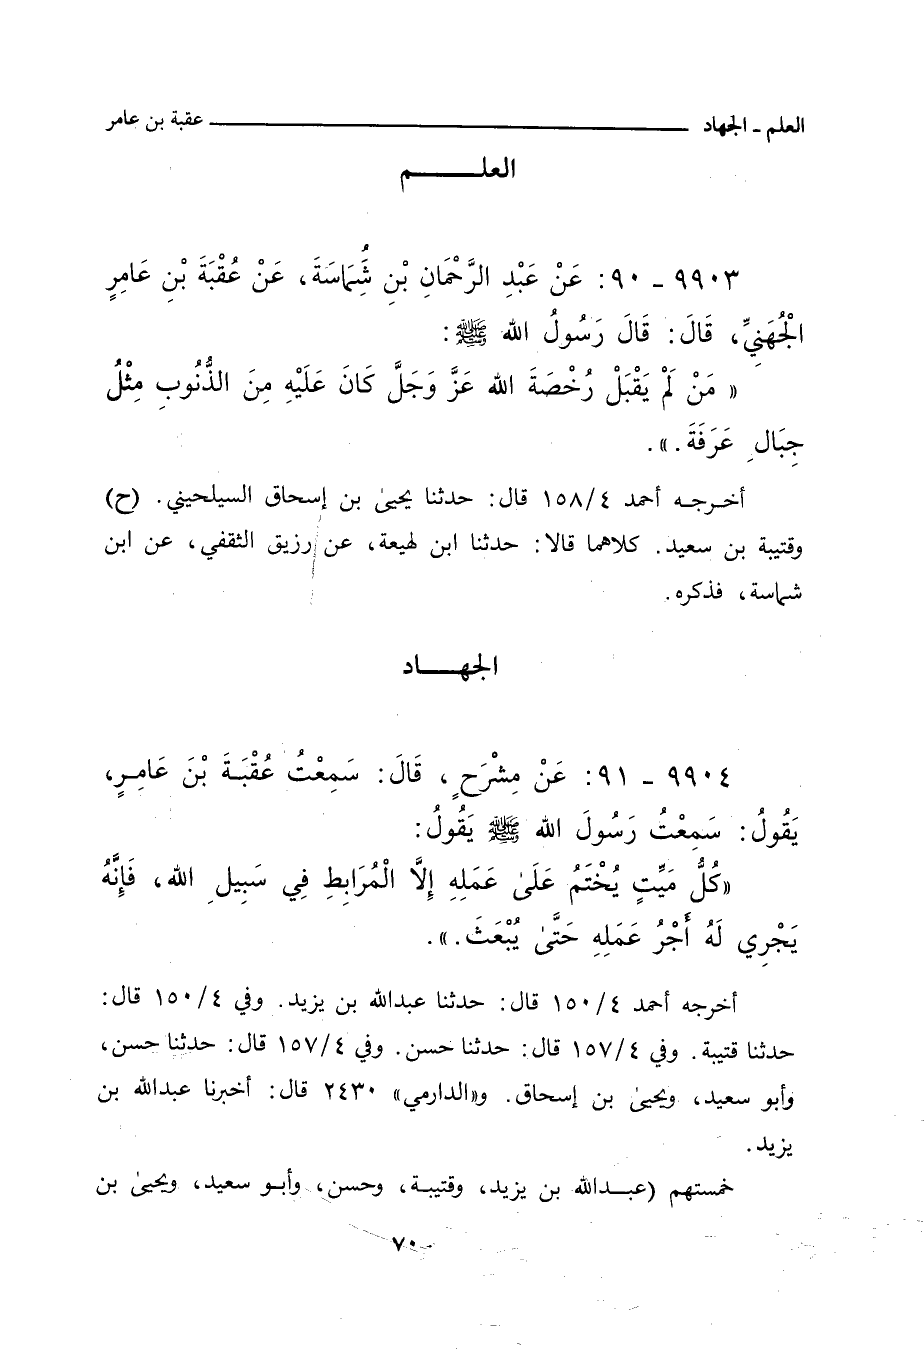 العلم - الجهاد عقبة بن عامر
العلـــــــم
٩٩٠٣ - ٩٠: عَنْ عَبْدِ الرَّحْمَانِ بْنِ شُِمَاسَةَ، عَنْ عُقْبَةَ بْنِ عَامِرٍ
الْجُهَنِيِّ، قَالَ: قَالَ رَسُولُ الله ﷺ:
« مَنْ لَمْ يَقْبَلْ رُخْصَةَ الله عَزَّ وَجَلَّ كَانَ عَلَيْهِ مِنَ الذُّنُوبِ مِثْلُ
جِبَالِ عَرَفَةَ.».
أخـرجـه أحمد ٤/١٥٨ قال: حدثنا يحيىٰ بن إسحاق السيلحيني. (ح)
وقتيبة بن سعيد. كلاهما قالا: حدثنا ابن لهيعة، عن رزيق الثقفي، عن ابن
شماسة، فذكره.
الجهـــــاد
٩٩٠٤ - ٩١: عَنْ مِشْرَحٍ، قَالَ: سَمِعْتُ عُقْبَـةَ بْنَ عَامِـرٍ،
يَقُولُ: سَمِعْتُ رَسُولَ الله ﷺ يَقُولُ:
«كُلُّ مَيِّتٍ يُخْتَمُ عَلَىٰ عَمَلِهِ إِلَّا الْمُرَابِطِ فِي سَبِيلِ الله، فَإِنَّهُ
يَجْرِي لَهُ أَجْرُ عَمَلِهِ حَتَّىٰ يُبْعَثَ.».
أخرجه أحمد ٤/١٥٠ قال: حدثنا عبدالله بن يزيد. وفي ٤/١٥٠ قال:
حدثنا قتيبة. وفي ٤/١٥٧ قال: حدثنا حسن. وفي ٤/١٥٧ قال: حدثنا حسن،
وأبو سعيد، ويحيىٰ بن إسحاق. و«الدارمي» ٢٤٣٠ قال: أخبرنا عبدالله بن
يزيد.
خمستهم (عبـــدالله بن يزيد، وقتيبـة، وحسن، وأبـو سعيد، ويحيىٰ بن
٧٠